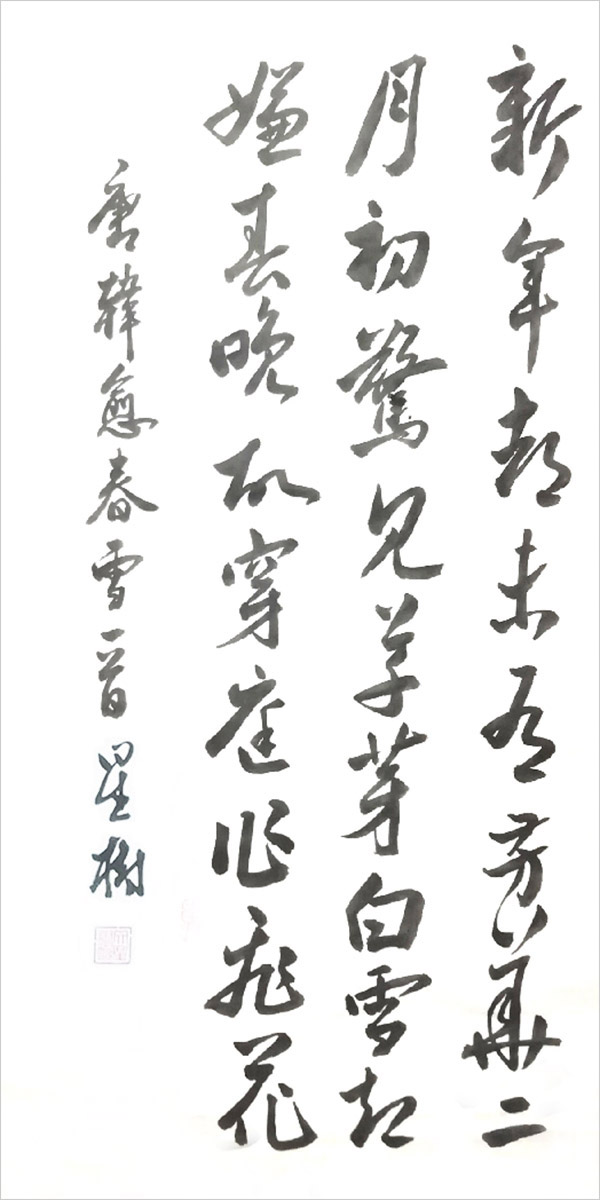 新年都未有芳華二
月初驚見草芽白雪却
嫌春晚故穿庭作飛花
唐韓愈春雪一首 星樹